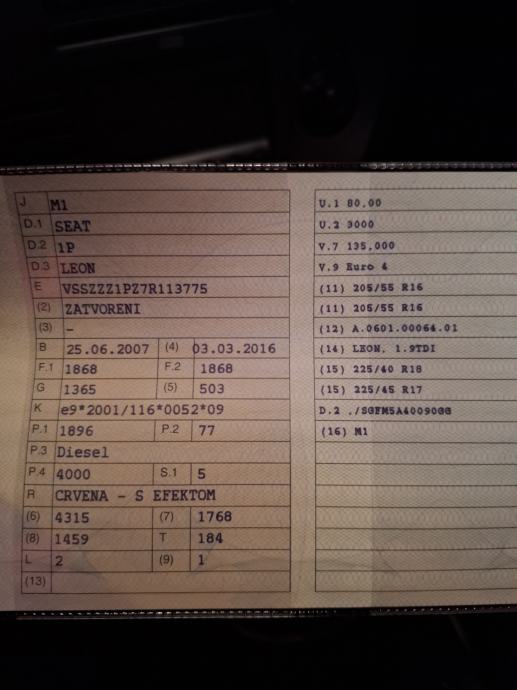 J M1
D.1 SEAT
D.2 1P
D.3 LEON
E VSSZZZ1PZ7R113775
(2) ZATVORENI
(3) -
B 25.06.2007 (4) 03.03.2016
F.1 1868 F.2 1868
G 1365 (5) 503
K e9*2001/116*0052*09
P.1 1896 P.2 77
P.3 Diesel
P.4 4000 S.1 5
R CRVENA - S EFEKTOM
(6) 4315 (7) 1768
(8) 1459 T 184
L 2 (9) 1
(13)
U.1 80,00
U.2 3000
V.7 135,000
V.9 Euro 4
(11) 205/55 R16
(11) 205/55 R16
(12) A.0601.00064.01
(14) LEON, 1.9TDI
(15) 225/40 R18
(15) 225/45 R17
D.2 ./SGFM5A40090GG
(16) M1